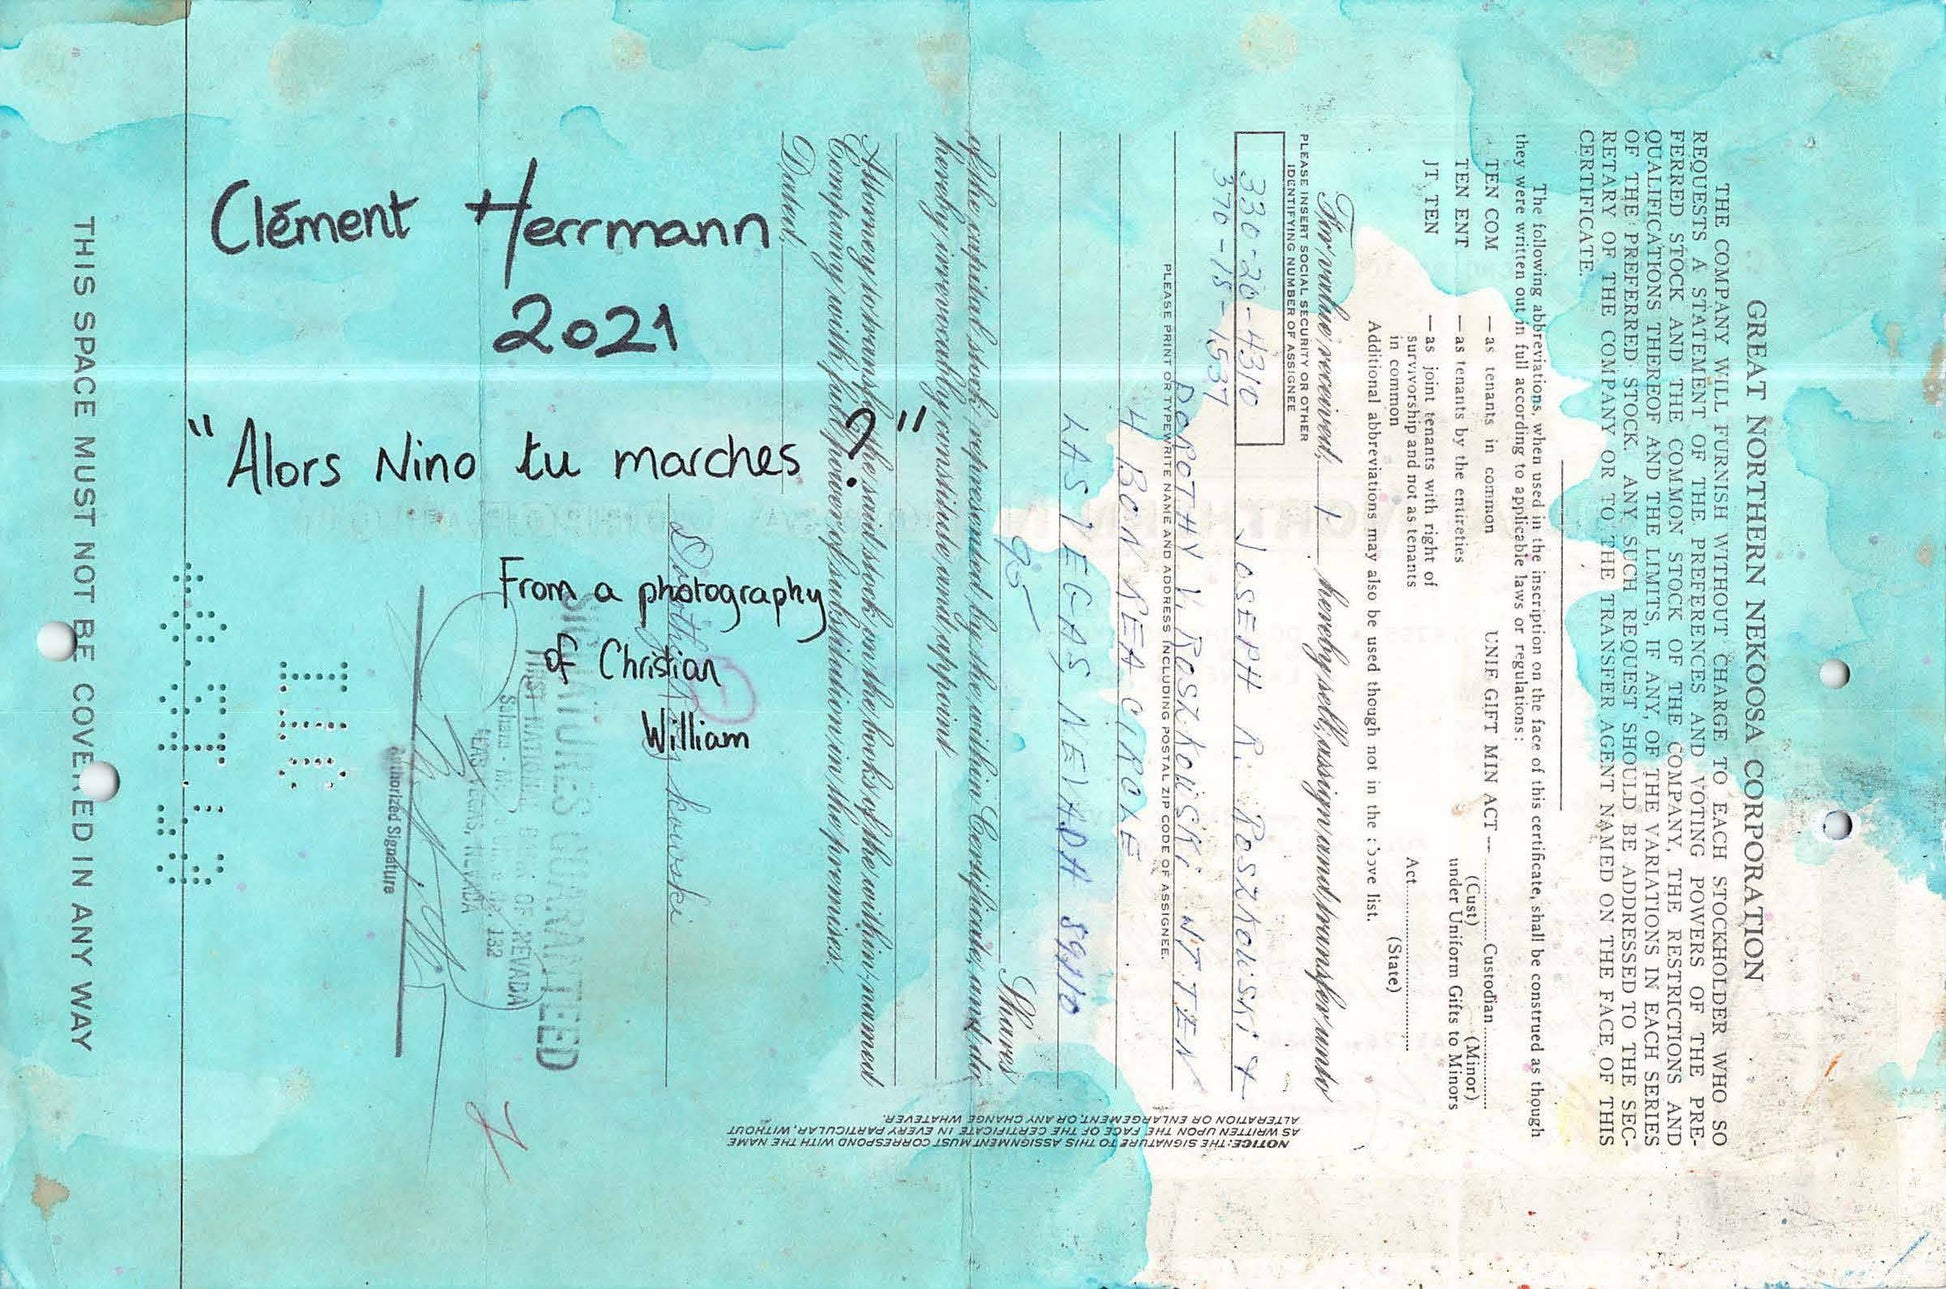 Clément Herrmann
2021
"Alors Nino tu marches ?"
From a photography
of Christian
William
GREAT NORTHERN NEKOOSA CORPORATION
THE COMPANY WILL FURNISH WITHOUT CHARGE TO EACH STOCKHOLDER WHO SO
REQUESTS A STATEMENT OF THE PREFERENCES AND VOTING POWERS OF THE PRE-
FERRED STOCK AND THE COMMON STOCK OF THE COMPANY, THE RESTRICTIONS AND
QUALIFICATIONS THEREOF AND THE LIMITS, IF ANY, OF THE VARIATIONS IN EACH SERIES
OF THE PREFERRED STOCK. ANY SUCH REQUEST SHOULD BE ADDRESSED TO THE SEC-
RETARY OF THE COMPANY OR TO THE TRANSFER AGENT NAMED ON THE FACE OF THIS
CERTIFICATE.
The following abbreviations, when used in the inscription on the face of this certificate, shall be construed as though
they were written out in full according to applicable laws or regulations:
TEN COM — as tenants in common UNIF GIFT MIN ACT — ............ Custodian ............
(Cust) (Minor)
TEN ENT — as tenants by the entireties under Uniform Gifts to Minors
JT TEN — as joint tenants with right of
survivorship and not as tenants
in common
Act ............
(State)
Additional abbreviations may also be used though not in the above list.
For value received, I hereby sell, assign and transfer unto
PLEASE INSERT SOCIAL SECURITY OR OTHER
IDENTIFYING NUMBER OF ASSIGNEE
330-20-4310 JOSEPH R. ROSZKOWSKI &
370-18-1537
DOROTHY V. ROSZKOWSKI JT TEN
PLEASE PRINT OR TYPEWRITE NAME AND ADDRESS INCLUDING POSTAL ZIP CODE OF ASSIGNEE.
4 BON REA CIRCLE
LAS VEGAS, NEVADA 89110
95 — Shares
of the capital stock represented by the within Certificate, and do
hereby irrevocably constitute and appoint
Attorney to transfer the said stock on the books of the within-named
Company with full power of substitution in the premises.
Dated,
SIGNATURES GUARANTEED
FIRST NATIONAL BANK OF NEVADA
LAS VEGAS, NEVADA
Authorized Signature
NOTICE: THE SIGNATURE TO THIS ASSIGNMENT MUST CORRESPOND WITH THE NAME
AS WRITTEN UPON THE FACE OF THE CERTIFICATE IN EVERY PARTICULAR, WITHOUT
ALTERATION OR ENLARGEMENT, OR ANY CHANGE WHATEVER.
THIS SPACE MUST NOT BE COVERED IN ANY WAY